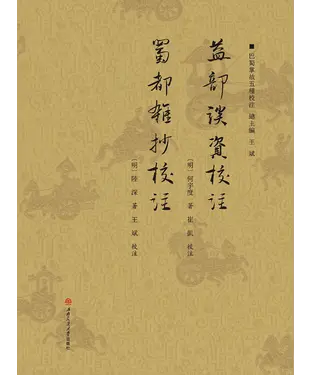 ■巴蜀掌故五種校注 總主編 王 斌
益部談資校注
〔明〕何宇度 著 崔 凱 校注
蜀都雜抄校注
〔明〕陸 深 著 王 斌 校注